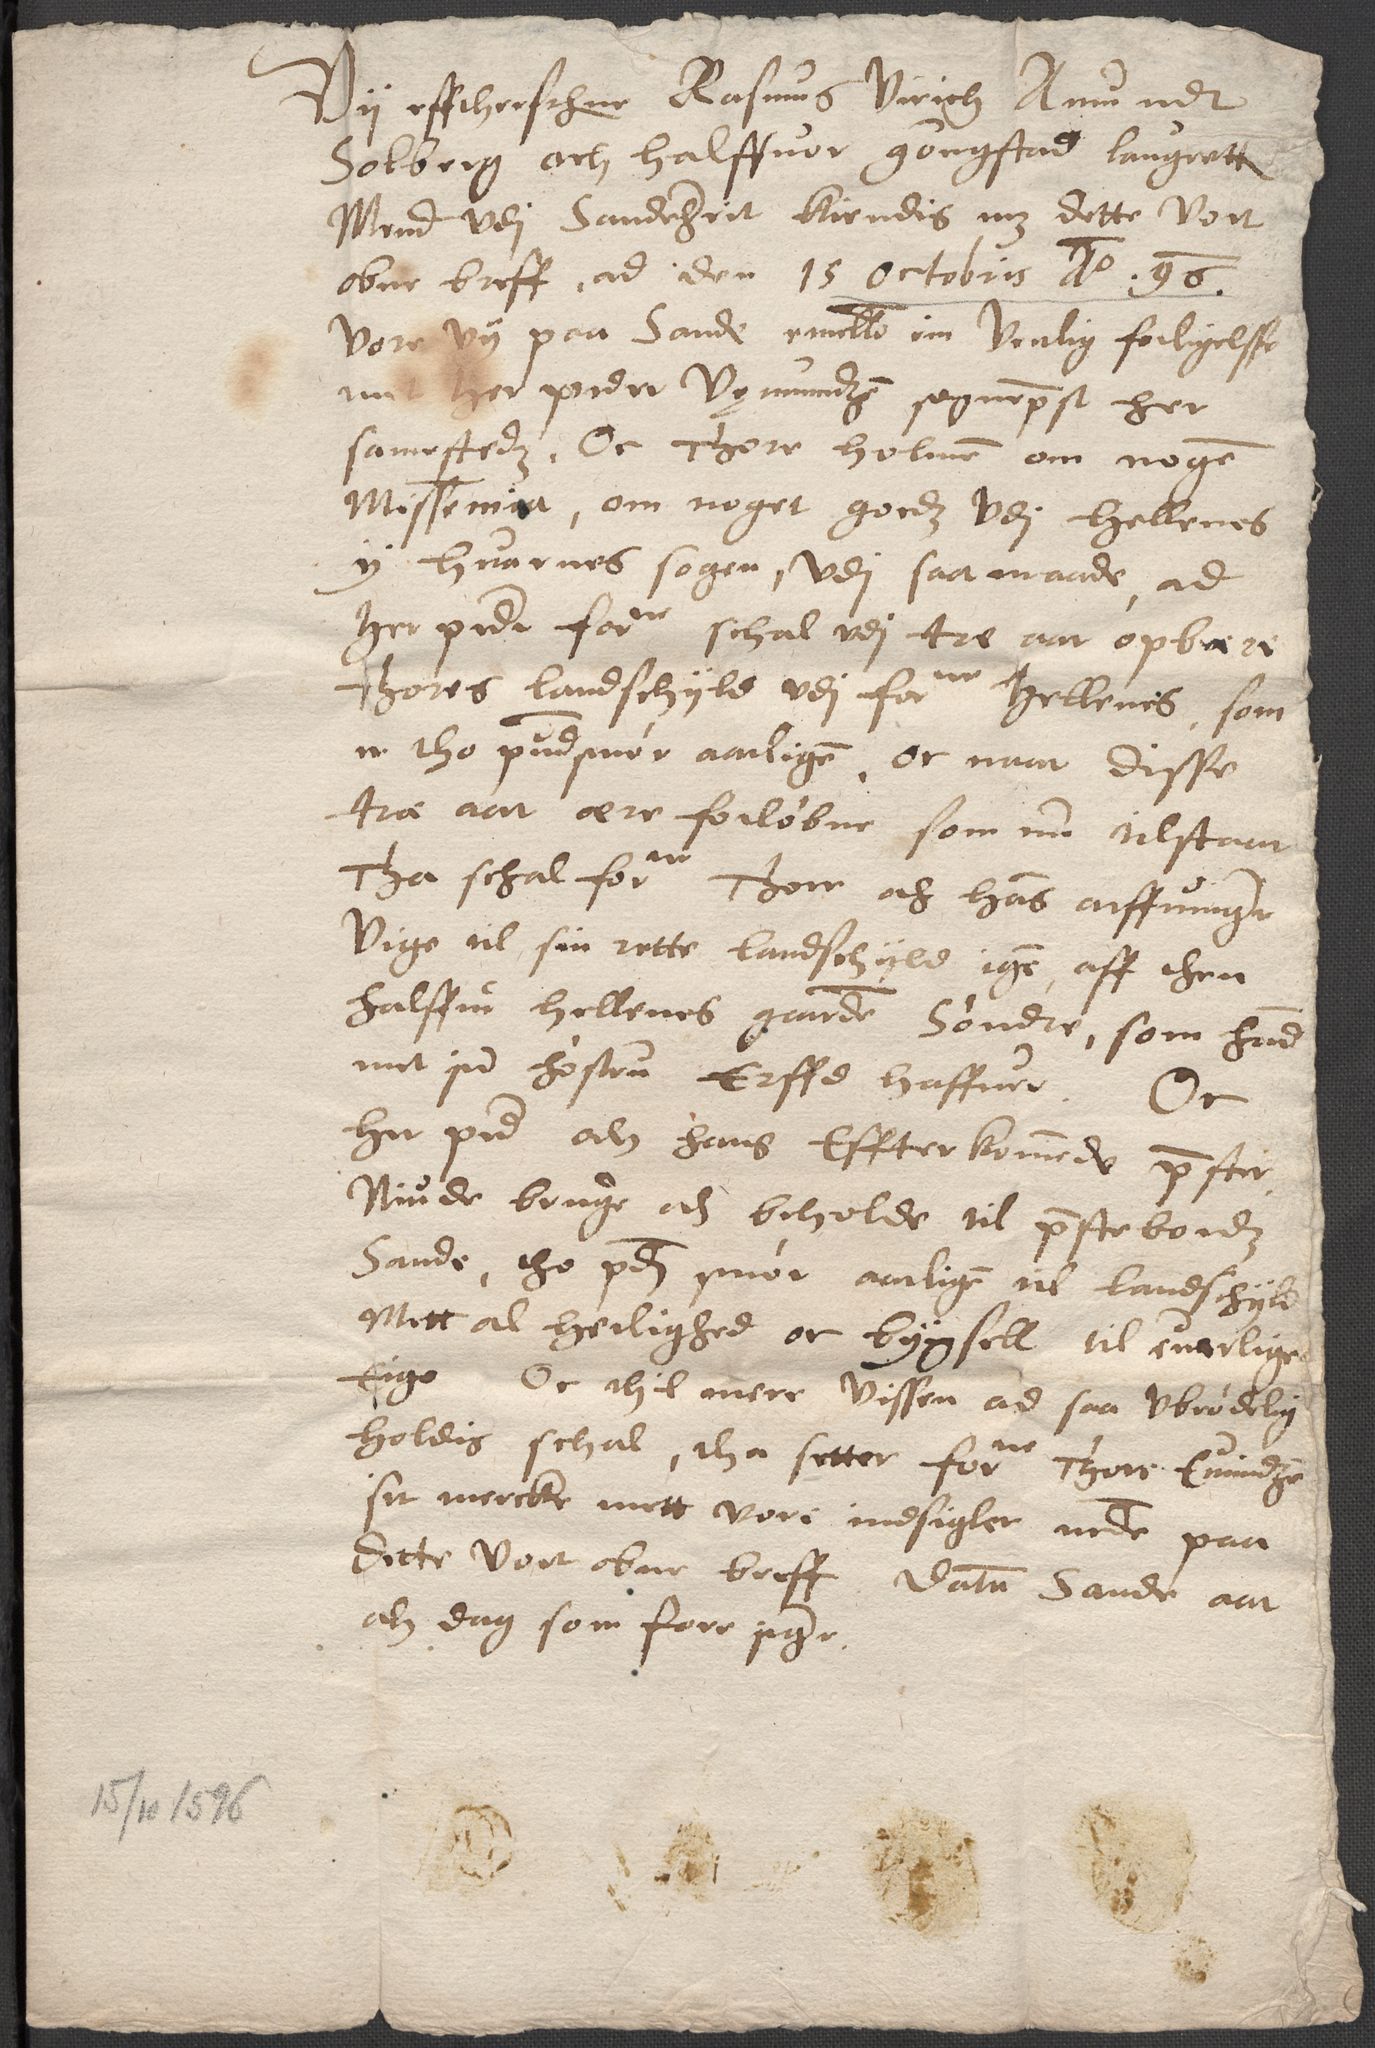 Vij effterschne Rasmus Virich Amundt
Solberg och halffuor gongstad laugrett
Mend vdj Sandeherit kiendis mz dette vort
obne breff, ad den 15 Octobris Ao .96.
vore vij paa Sande emello im venlig forligelsse
mit her peder sogneprest her
samestedz. Oc Thore holmen om nogen
Missemia, om noget godz vdj Hellenes
ij huarnes sogen, vdj saa maade, ad
Her peder forne schal vdj tre aar opbære
Thores landschyld vdj forne Hellenes, som
er tho pundsmör aarligen, oc naar disse
træ aar ære forlöbne som nu tilstaar
Tha schal forne Thore och hans arffuinger
Vige til sin rette landschyld igen, aff then
halffue hellenes gaarde Söndre, som hand
met sin höstru Erffd haffuer. Oc
her peder och hans Effterkomende prester
Niude bruge och beholde til prestebordz
Sande, tho pd smör aarligen til landschyld
Mett al herlighed oc bygsell til euerlige
Eige Oc thil mere vissen ad saa vbrödelig
holdis schal, tha setter forne Thore Euindzen
sit mercke mett vore indsigler neden paa
dette vort obne breff. Datum Sande aar
och dag som fore siger.
15/10 1596